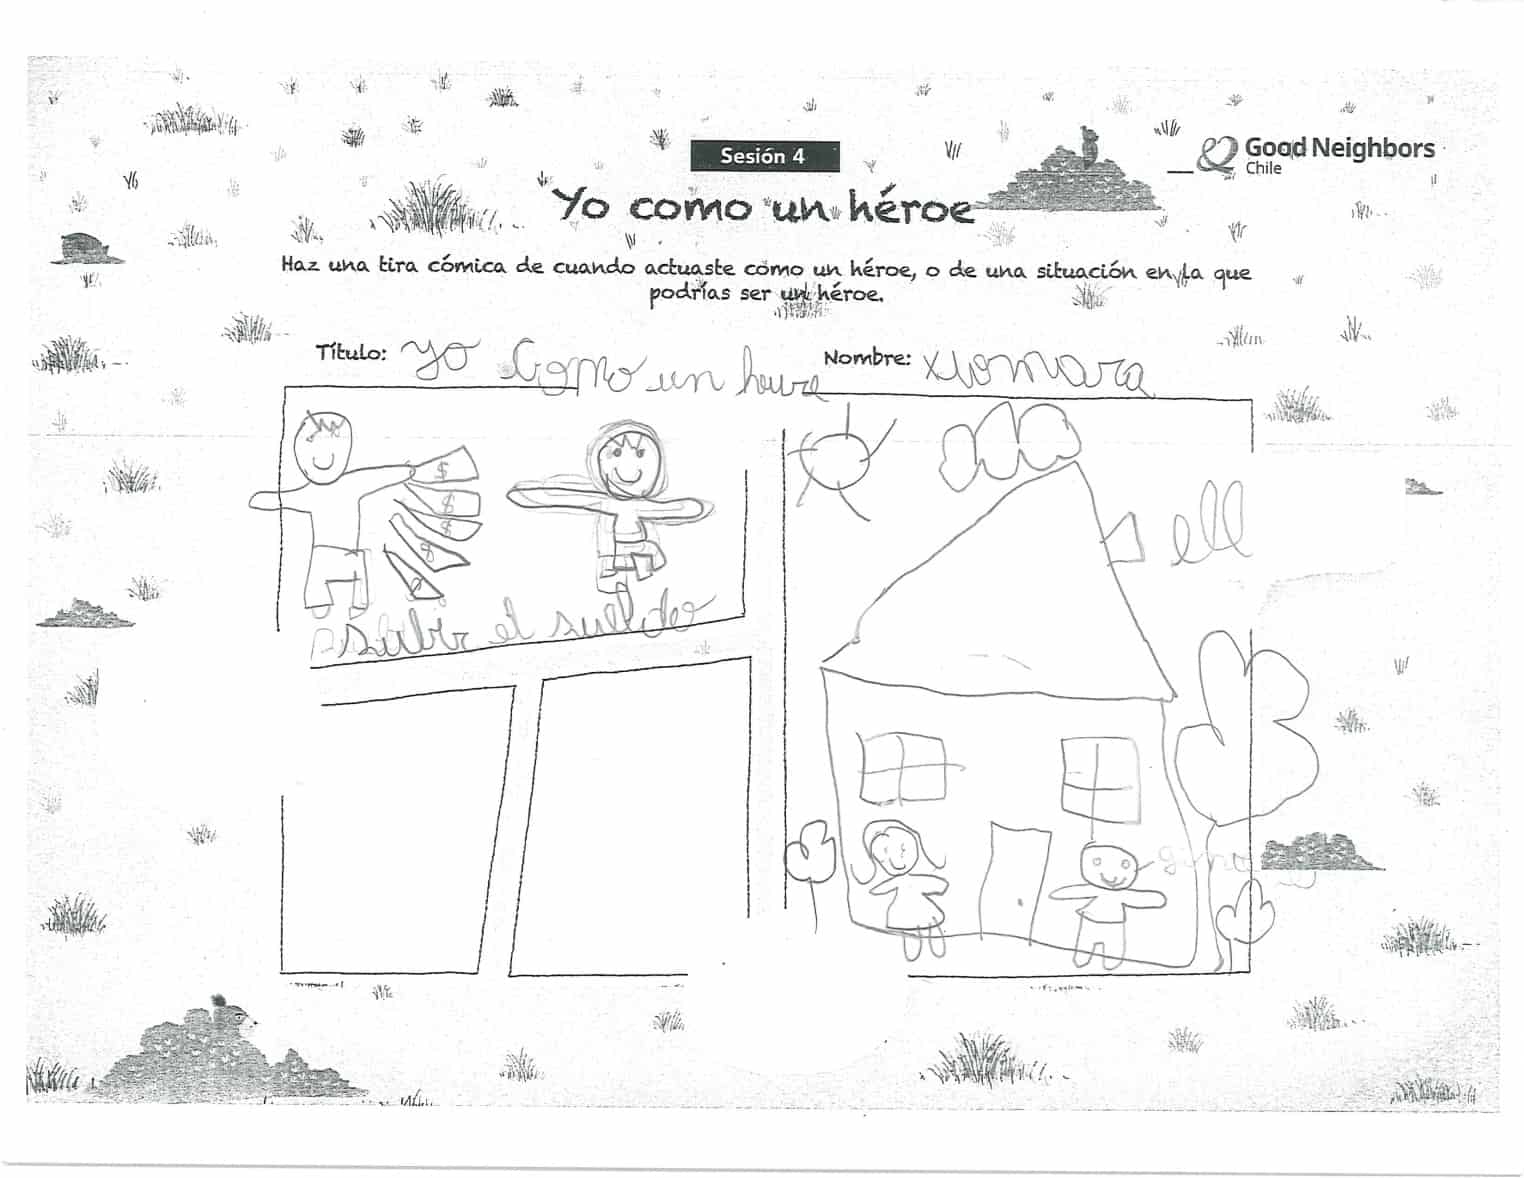 Sesión 4
Good Neighbors
Chile
Yo como un héroe
Haz una tira cómica de cuando actuaste como un héroe, o de una situación en la que
podrías ser un héroe.
Título: yo como un
Nombre: xiomara
$
$
$
$
subir el sueldo